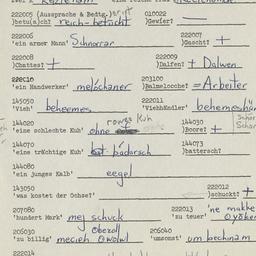 222005 (Aussprache & Bedtg.) 010022
)betu(a)ch? reich - betucht )Gewier? -
222006 222007
'ein armer Mann' Schnorrar )Gascht? +
222008 222009
)Chattes? + )Dalfen? + Dalwen
222010 203100
'ein Handwerker' melochaner )Balmelocche? = Arbeiter
145050 222011
'Vieh' beheemes 'Viehhändler' behemeshän
144020 rowge Kuh 144030
'eine schlechte Kuh' ohne )Boore? +
144070 144073
'eine trächtige Kuh' hat bádorsch )battersch?
144080
'ein junges Kalb' eegel
143050 222012
'was kostet der Ochse?' )schuckt? +
207080 222013 'ne makke
'hundert Mark' mej schuck 'zu teuer'
205030 206040
'zu billig' 'umsonst' um bechinam
222014